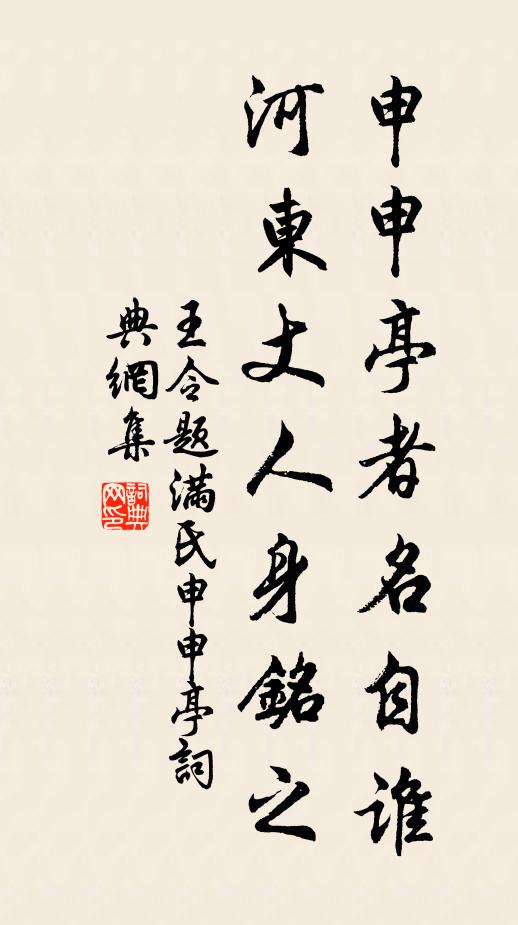 申申亭者名自誰
河東丈人身銘之
王令題滿氏申申亭詞
典網集
詞典網印